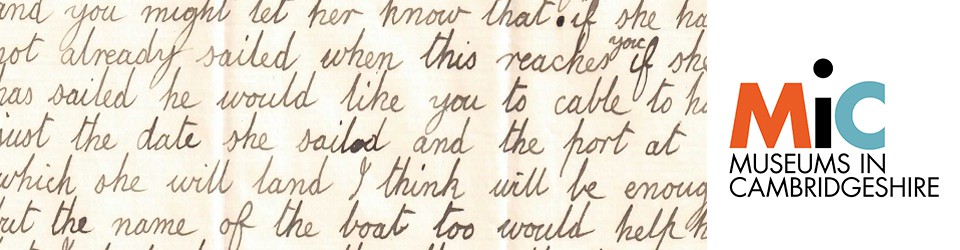 and you might let her know that if she ha
not already sailed when this reaches you if she
has sailed he would like you to cable to h
just the date she sailed and the port at
which she will land I think will be enoug
but the name of the boat too would help h
MiC
MUSEUMS IN
CAMBRIDGESHIRE